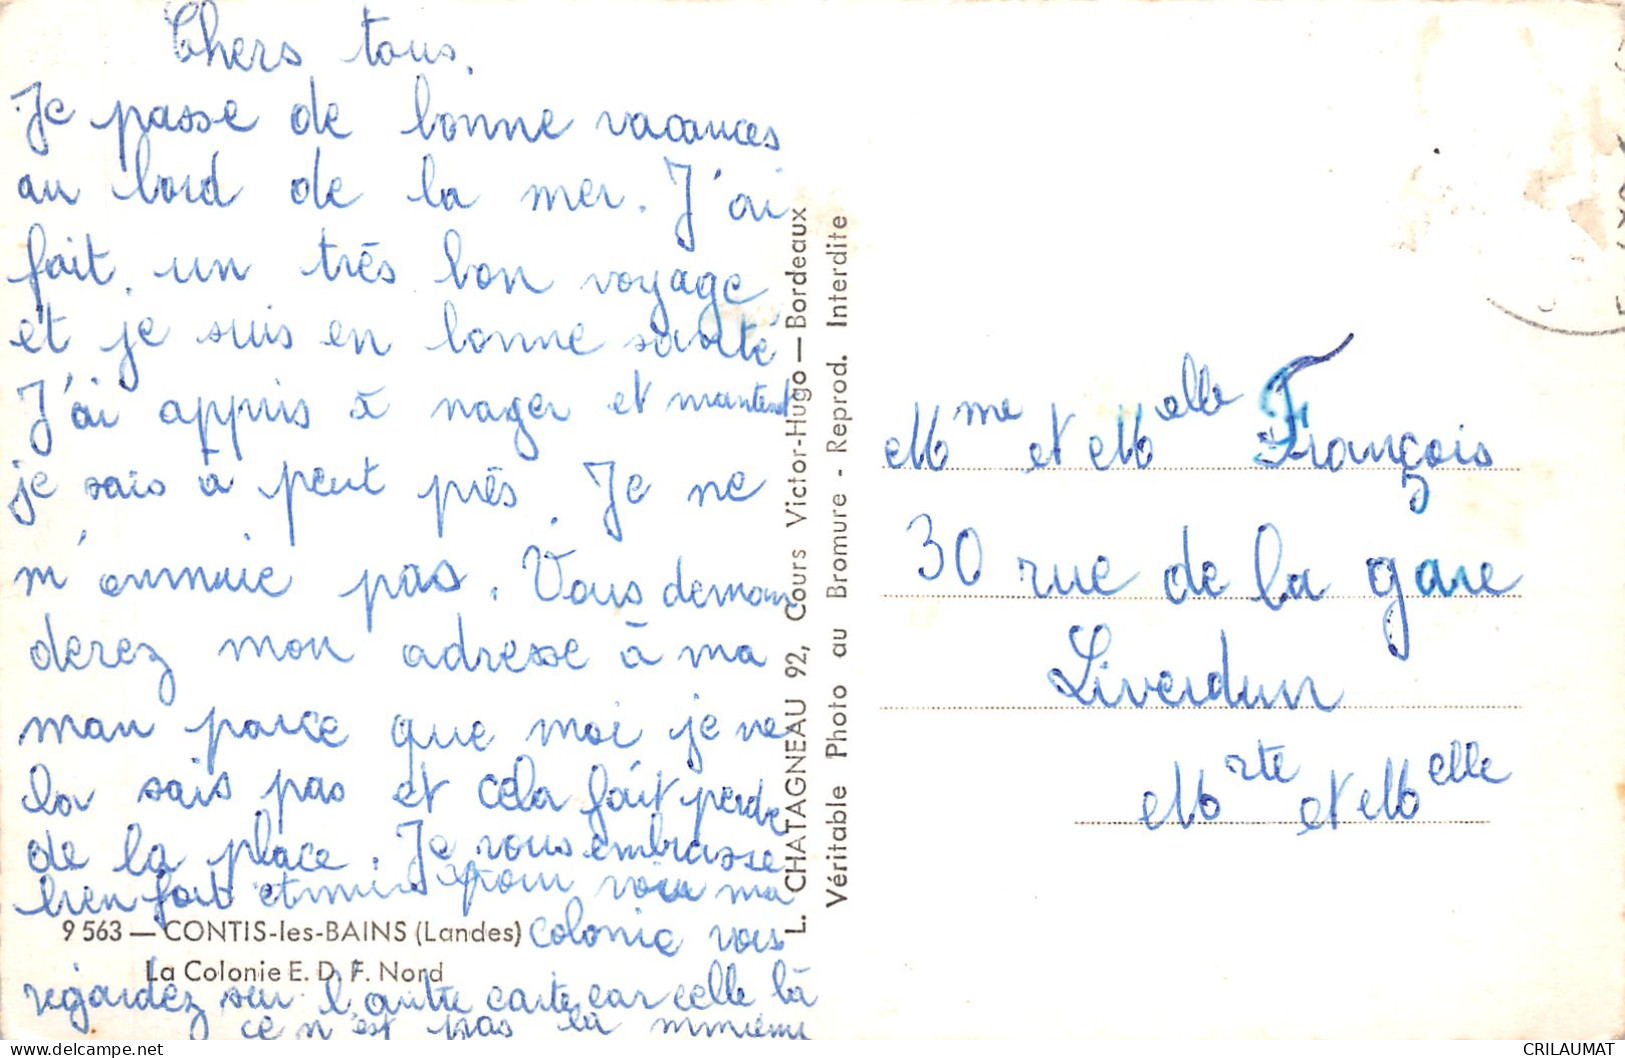 Chers tous.
Je passe de bonne vacances
au bord de la mer. J'ai
fait un très bon voyage
et je suis en bonne santé
J'ai appris à nager et maintenant
je sais à peut près. Je ne
m'ennuie pas. Vous deman
derez mon adresse à ma
man parce que moi je ne
la sais pas et cela fait perdre
de la place. Je vous embrasse
bien fort et pour voir ma
colonie vous
regardez sur l'autre carte car celle là
ce n'est pas la mienne
9 563 — CONTIS-les-BAINS (Landes)
La Colonie E. D. F. Nord
L. CHATAGNEAU 92, Cours Victor-Hugo — Bordeaux
Véritable Photo au Bromure - Reprod. Interdite
Mme et Melle François
30 rue de la gare
Liverdun
Mrte et Melle
CRILAUMAT